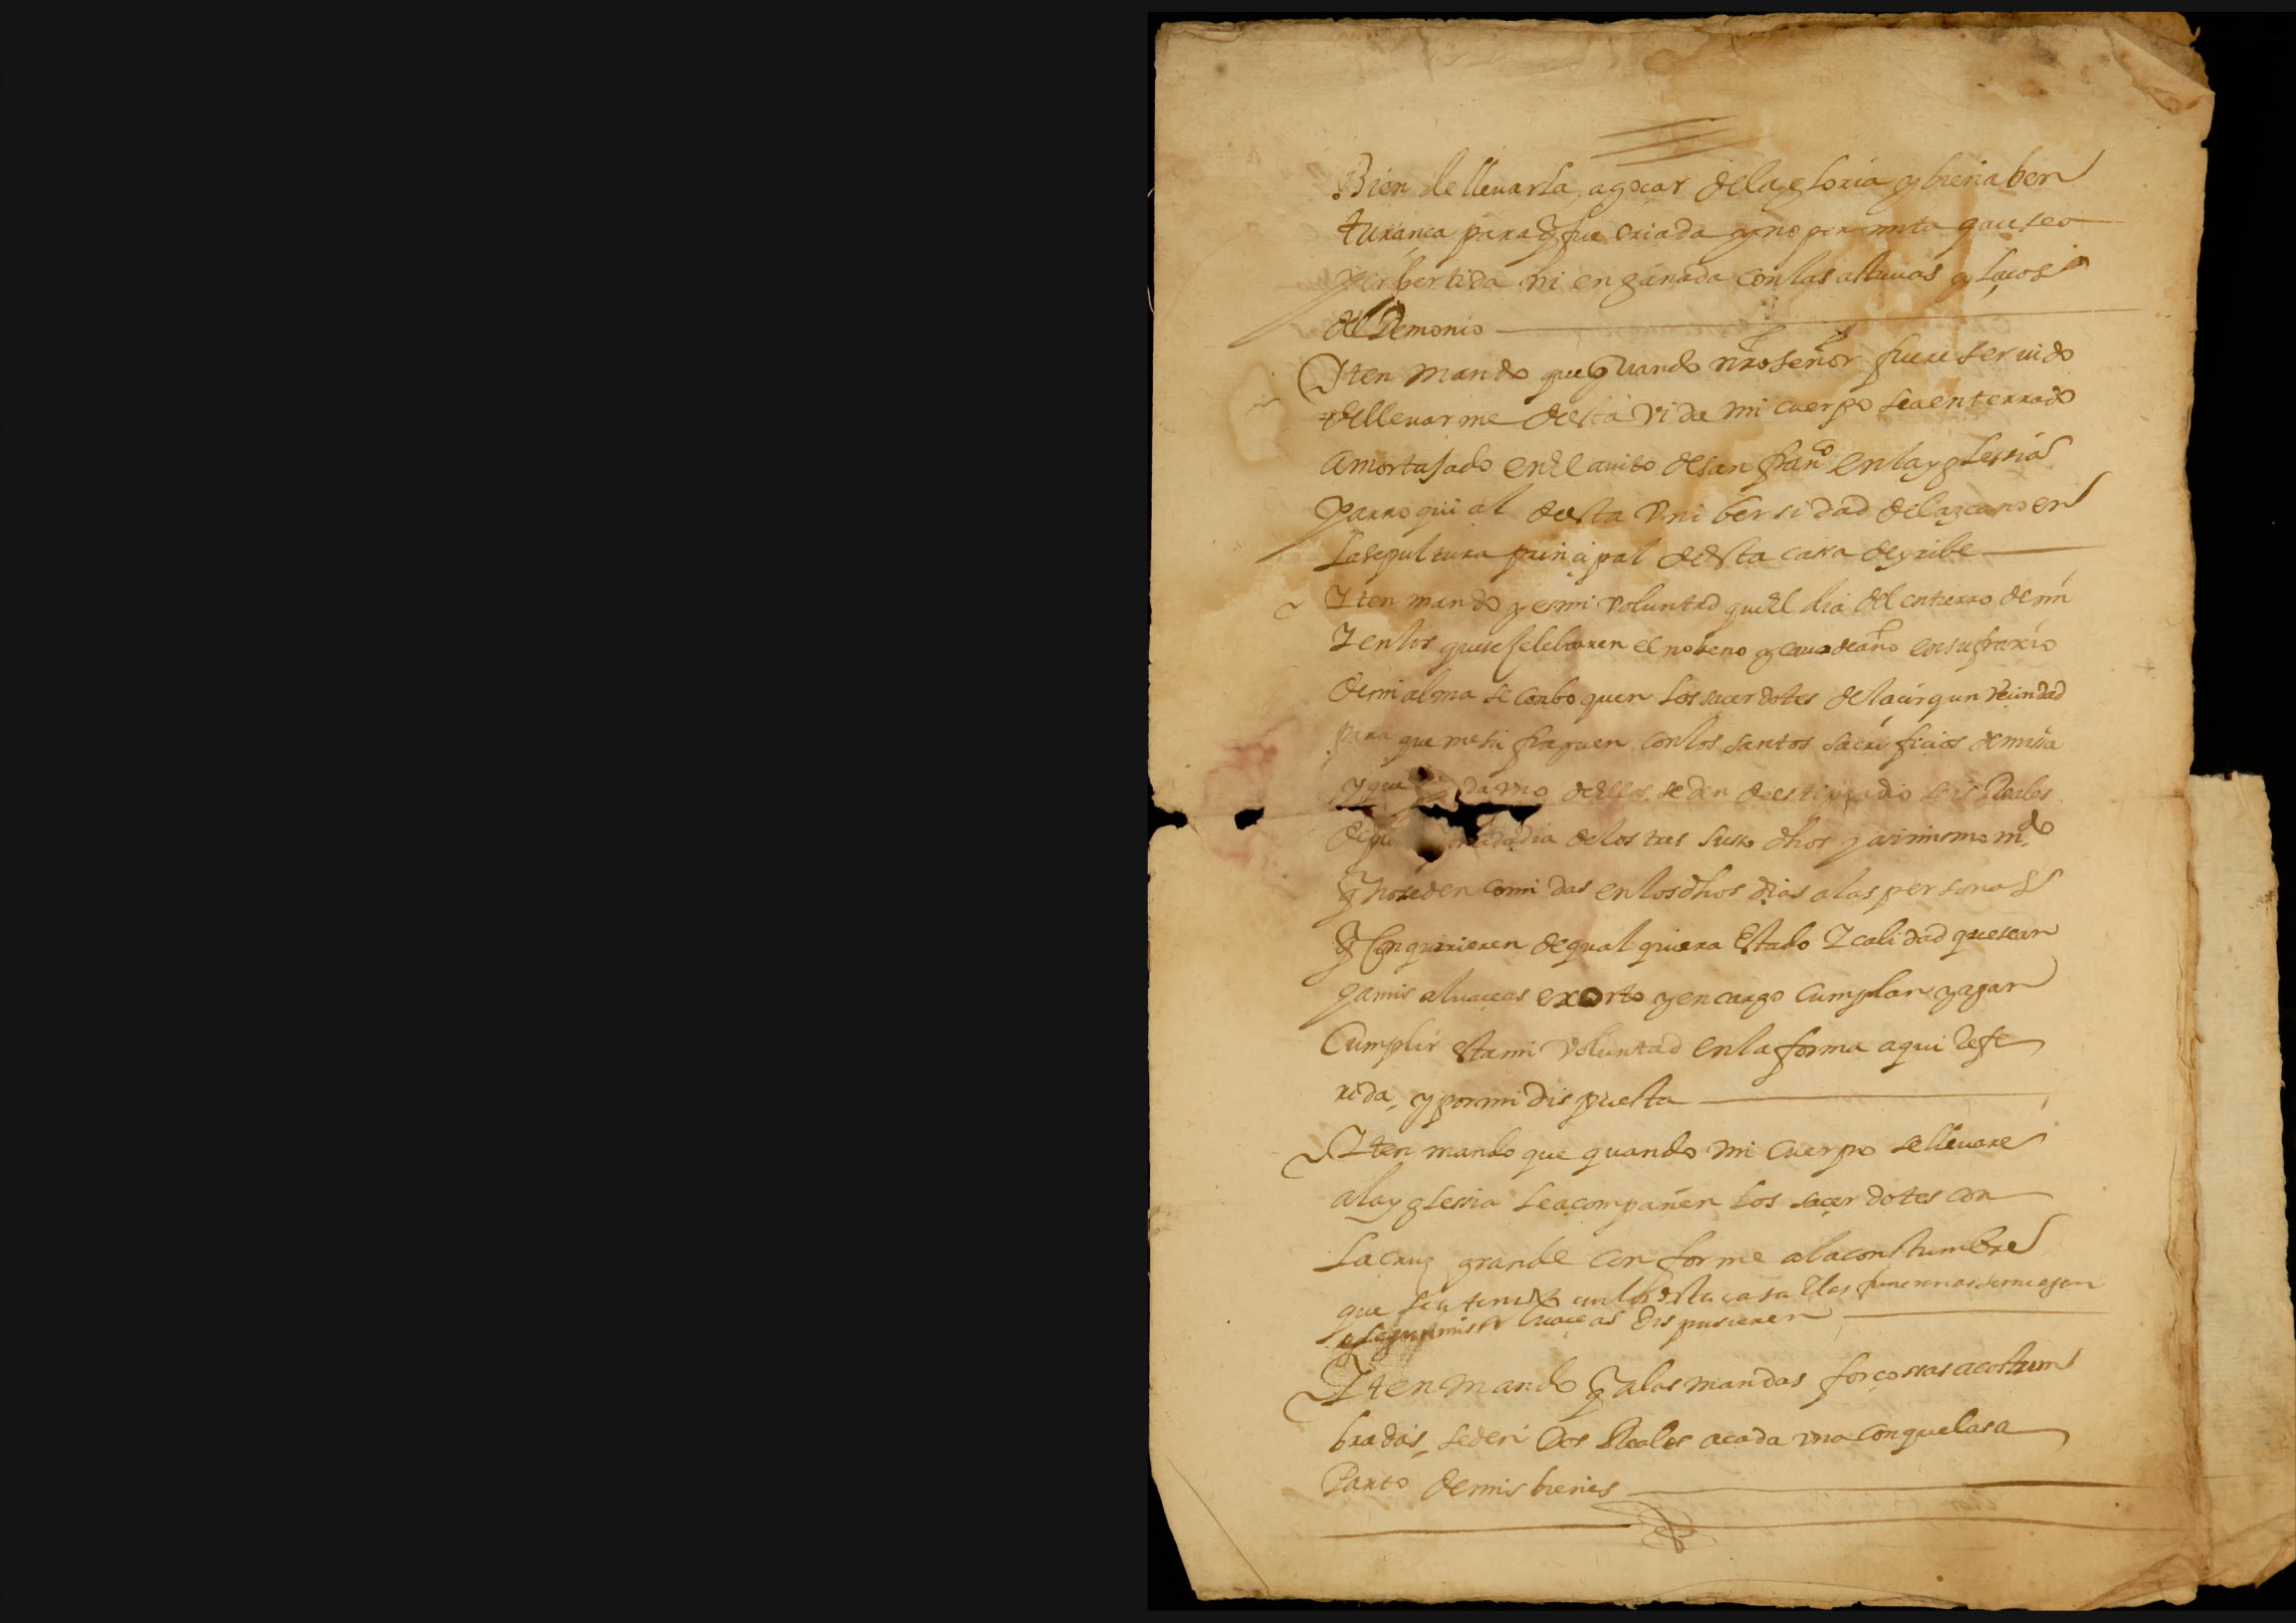 Bien de lleuarla agoçar de la gloria y biena ben
turança para q fue criada y no permita q a u seo
perbertida ni engañada con las astucias y laços
del Demonio
Iten mando que quando nro señor fuere seruido
de lleuarme desta vida mi cuerpo sea enterrado
amortajado en el auito de san franco en la yglessia
parroquial desta vnibersidad de lazcano en
la sepultura principal desta cassa de yribe
Iten mando y es mi voluntad que el dia del entierro de mi
I en los que se selebraren el nobeno y cauo de año en sufraxio
de mi alma se conboquen los sacerdotes de la circunvecindad
para que me sufraguen con los santos sacrificios de missa
y que da vno dellos se den de estipendio seis Reales
de pla cada dia de los tres suso dhos y asimismo mdo
q no se den comidas en los dhos dias a las personas
q Conqurrieren de qual quiera estado I calidad que sean
y a mis aluaceas exorto y encargo cumplan y agan
Cumplir esta mi voluntad en la forma aqui Refe
rida, y por mi dispuesta
Iten mando que quando mi cuerpo se lleuare
a la yglessia le acompañen los sacerdotes con
la cruz grande conforme a la constumbre
que se a tenido en desta casa
segun mis Aluaceas dispusieren
Iten mando q a las mandas forçossas acostum
bradas, se den Dos Reales a cada vna con que las a
Parto de mis bienes